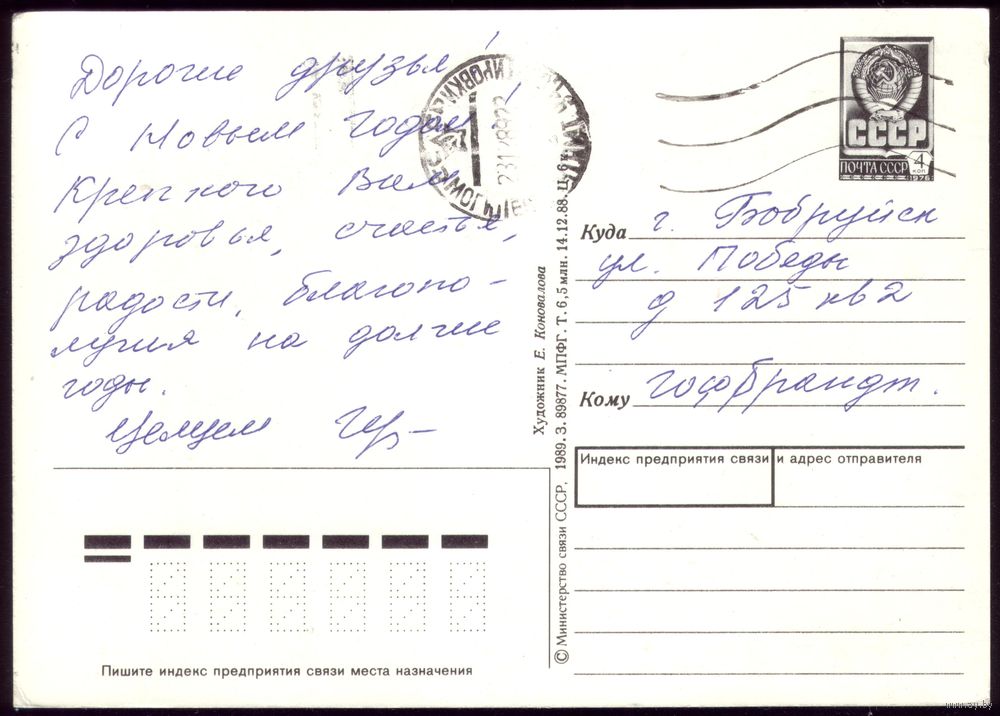 Дорогие друзья!
С Новым годом!
Крепкого Вам
здоровья, счастья,
радости, благопо-
лучия на долгие
годы.
Целуем
СССР
ПОЧТА СССР
4 КОП
1976
Куда г. Бобруйск
ул. Победы
д 125 кв 2
Кому Гофбрандт.
Индекс предприятия связи и адрес отправителя
Художник Е. Коновалова
© Министерство связи СССР, 1989. З. 89877. МПФГ. Т. 6,5 млн. 14.12.88. Ц. 6 к.
Пишите индекс предприятия связи места назначения